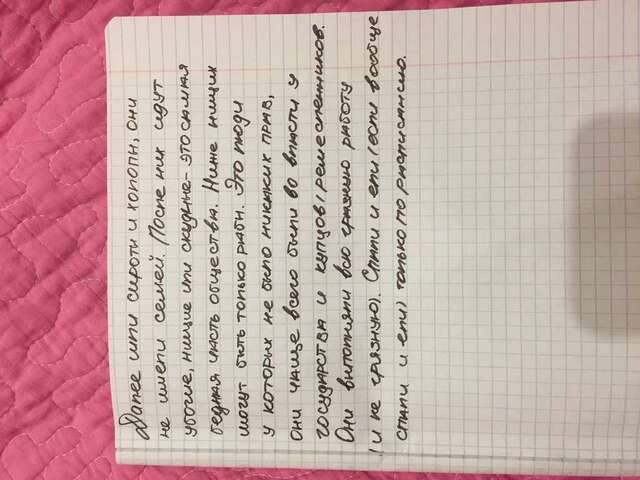 Далее шли сироты и холопы, они
не имели семей. После них идут
убогие, нищие или скудные - это самая
бедная часть общества. Ниже нищих
могут быть только рабы. Это люди
у которых не было никаких прав,
они чаще всего были во власти у
государства и купцов/ремесленников.
Они выполняли всю грязную работу
(и не грязную). Спали и ели (если вообще
спали и ели) только по расписанию.